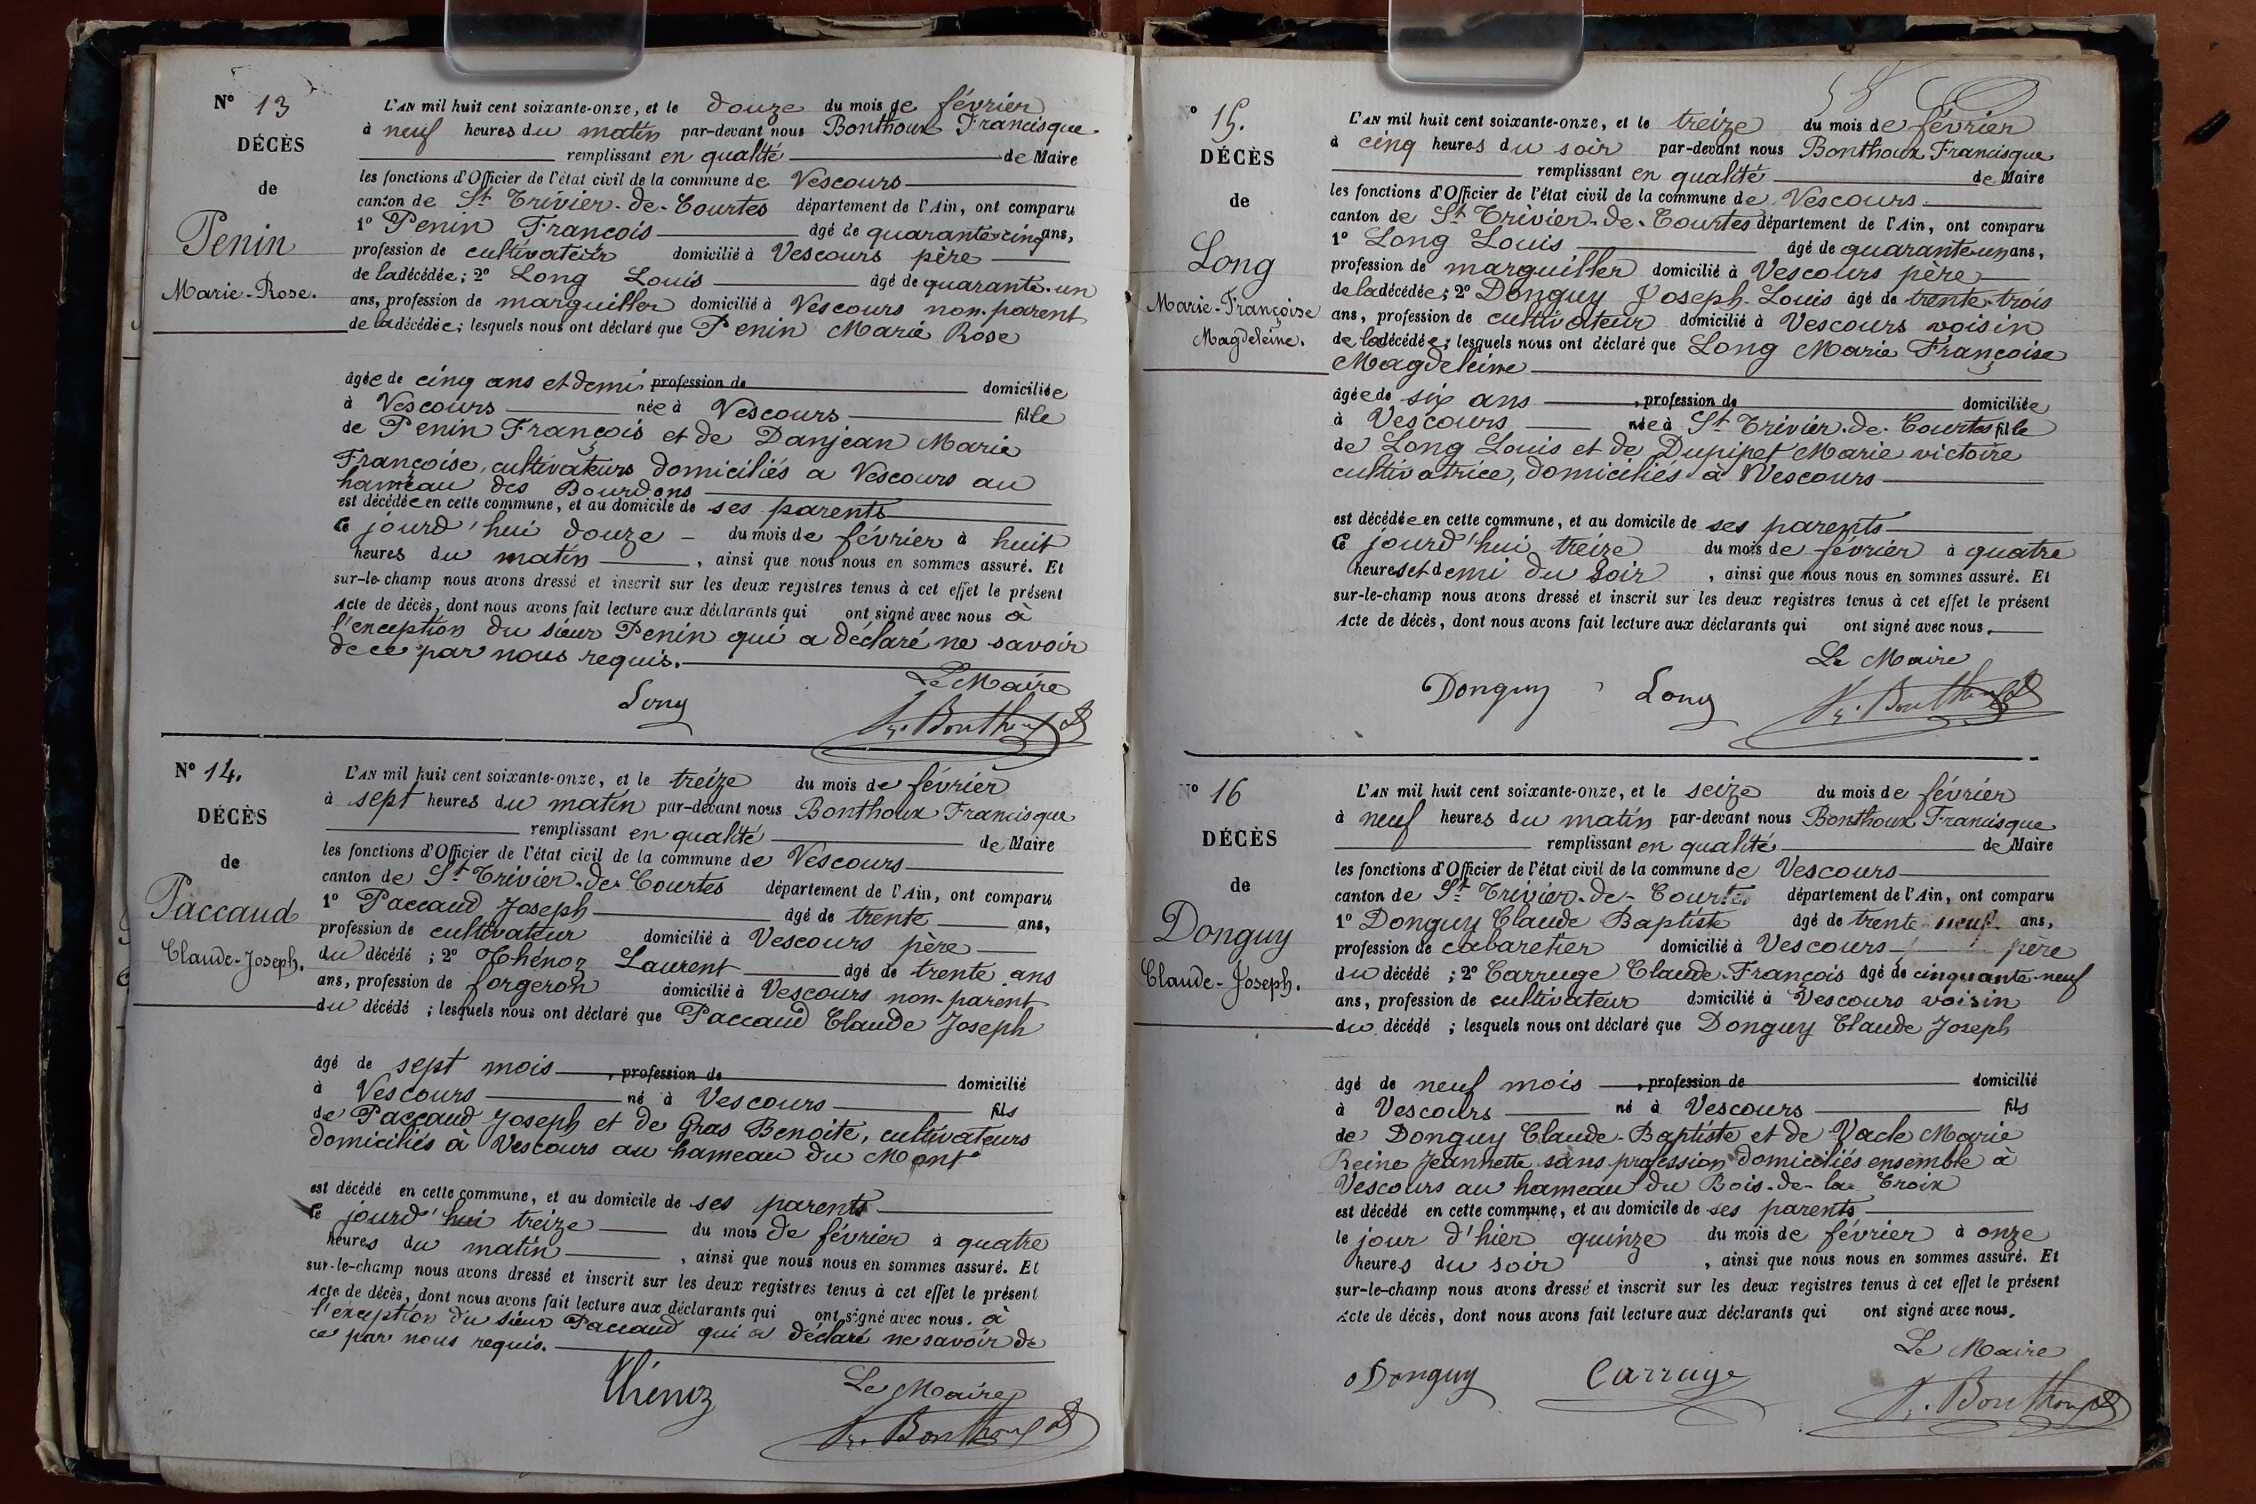 N° 13
DÉCÈS
de
Penin
Marie-Rose.
L'AN mil huit cent soixante-onze, et le douze du mois de février
à neuf heures du matin par-devant nous Bonthoux Francisque
remplissant en qualité de Maire
les fonctions d'Officier de l'état civil de la commune de Vescours
canton de St Trivier-de-Courtes département de l'Ain, ont comparu
1° Penin François âgé de quarante-cinq ans,
profession de cultivateur domicilié à Vescours père
de la décédée; 2° Long Louis âgé de quarante-un
ans, profession de marguiller domicilié à Vescours non-parent
de la décédée; lesquels nous ont déclaré que Penin Marie Rose
âgée de cinq ans et demi profession de domiciliée
à Vescours née à Vescours fille
de Penin François et de Danjean Marie
Françoise, cultivateurs domiciliés a Vescours au
hameau des Bourdons
est décédée en cette commune, et au domicile de ses parents
Ce jourd'hui douze du mois de février à huit
heures du matin, ainsi que nous nous en sommes assuré. Et
sur-le-champ nous avons dressé et inscrit sur les deux registres tenus à cet effet le présent
Acte de décès, dont nous avons fait lecture aux déclarants qui ont signé avec nous à
l'exception du sieur Penin qui a déclaré ne savoir
de ce par nous requis.
Le Maire
Long
Fr. Bonthoux
N° 14.
DÉCÈS
de
Paccaud
Claude-Joseph.
L'AN mil huit cent soixante-onze, et le treize du mois de février
à sept heures du matin par-devant nous Bonthoux Francisque
remplissant en qualité de Maire
les fonctions d'Officier de l'état civil de la commune de Vescours
canton de St Trivier-de-Courtes département de l'Ain, ont comparu
1° Paccaud Joseph âgé de trente ans,
profession de cultivateur domicilié à Vescours père
du décédé; 2° Thénoz Laurent âgé de trente ans
ans, profession de forgeron domicilié à Vescours non-parent
du décédé; lesquels nous ont déclaré que Paccaud Claude Joseph
âgé de sept mois, profession de domicilié
à Vescours né à Vescours fils
de Paccaud Joseph et de Gras Benoite, cultivateurs
domiciliés à Vescours au hameau du Mont
est décédé en cette commune, et au domicile de ses parents
Ce jourd'hui treize du mois de février à quatre
heures du matin, ainsi que nous nous en sommes assuré. Et
sur-le-champ nous avons dressé et inscrit sur les deux registres tenus à cet effet le présent
Acte de décès, dont nous avons fait lecture aux déclarants qui ont signé avec nous. à
l'exception du sieur Paccaud qui a déclaré ne savoir de
ce par nous requis.
Thénoz
Le Maire
Fr. Bonthoux
N° 15.
DÉCÈS
de
Long
Marie-Françoise
Magdeleine.
L'AN mil huit cent soixante-onze, et le treize du mois de février
à cinq heures du soir par-devant nous Bonthoux Francisque
remplissant en qualité de Maire
les fonctions d'Officier de l'état civil de la commune de Vescours
canton de St Trivier-de-Courtes département de l'Ain, ont comparu
1° Long Louis âgé de quarante-un ans,
profession de marguiller domicilié à Vescours père
de la décédée; 2° Donguy Joseph-Louis âgé de trente-trois
ans, profession de cultivateur domicilié à Vescours voisin
de la décédée; lesquels nous ont déclaré que Long Marie Françoise
Magdeleine
âgée de six ans, profession de domiciliée
à Vescours née à St Trivier-de-Courtes fille
de Long Louis et de Dupipet Marie victoire
cultivatrice, domiciliés à Vescours
est décédée en cette commune, et au domicile de ses parents
Ce jourd'hui treize du mois de février à quatre
heures et demi du soir, ainsi que nous nous en sommes assuré. Et
sur-le-champ nous avons dressé et inscrit sur les deux registres tenus à cet effet le présent
Acte de décès, dont nous avons fait lecture aux déclarants qui ont signé avec nous.
Le Maire
Donguy Long
Fr. Bonthoux
N° 16
DÉCÈS
de
Donguy
Claude-Joseph.
L'AN mil huit cent soixante-onze, et le seize du mois de février
à neuf heures du matin par-devant nous Bonthoux Francisque
remplissant en qualité de Maire
les fonctions d'Officier de l'état civil de la commune de Vescours
canton de St Trivier-de-Courtes département de l'Ain, ont comparu
1° Donguy Claude Baptiste âgé de trente neuf ans,
profession de cabaretier domicilié à Vescours père
du décédé; 2° Carruge Claude-François âgé de cinquante-neuf
ans, profession de cultivateur domicilié à Vescours voisin
du décédé; lesquels nous ont déclaré que Donguy Claude Joseph
âgé de neuf mois, profession de domicilié
à Vescours né à Vescours fils
de Donguy Claude-Baptiste et de Vacle Marie
Reine Jeannette sans profession domiciliés ensemble à
Vescours au hameau du Bois-de-la-Croix
est décédé en cette commune, et au domicile de ses parents
le jour d'hier quinze du mois de février à onze
heures du soir, ainsi que nous nous en sommes assuré. Et
sur-le-champ nous avons dressé et inscrit sur les deux registres tenus à cet effet le présent
Acte de décès, dont nous avons fait lecture aux déclarants qui ont signé avec nous.
Le Maire
Donguy Carruge
Fr. Bonthoux